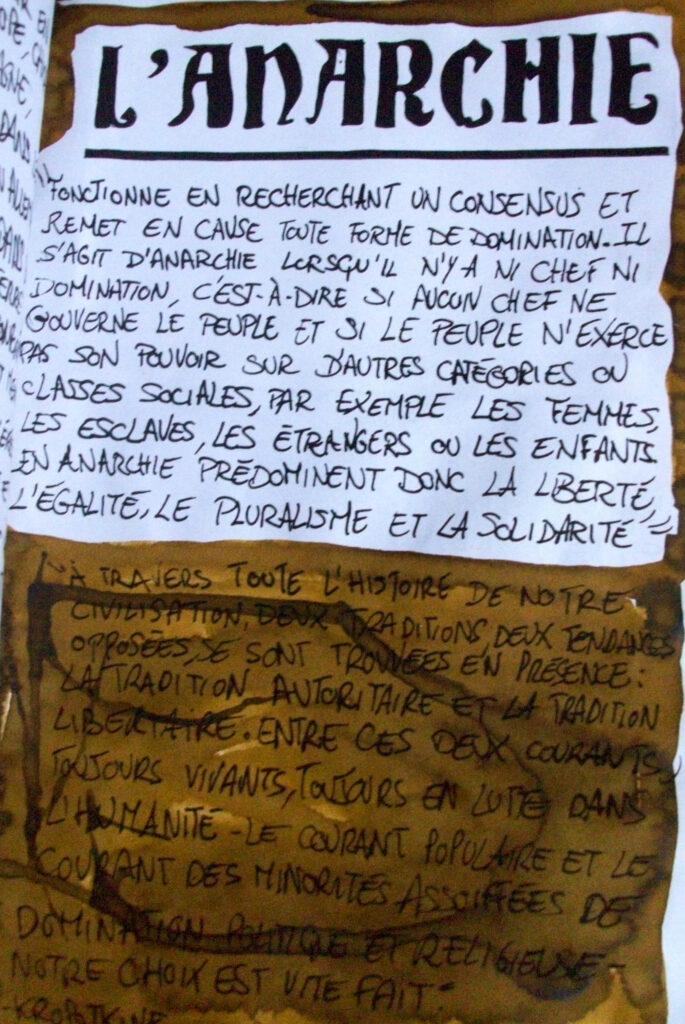 L'ANARCHIE
"FONCTIONNE EN RECHERCHANT UN CONSENSUS ET
REMET EN CAUSE TOUTE FORME DE DOMINATION. IL
S'AGIT D'ANARCHIE LORSQU'IL N'Y A NI CHEF NI
DOMINATION, C'EST-À-DIRE SI AUCUN CHEF NE
GOUVERNE LE PEUPLE ET SI LE PEUPLE N'EXERCE
PAS SON POUVOIR SUR D'AUTRES CATÉGORIES OU
CLASSES SOCIALES, PAR EXEMPLE LES FEMMES,
LES ESCLAVES, LES ÉTRANGERS OU LES ENFANTS.
EN ANARCHIE PRÉDOMINENT DONC LA LIBERTÉ,
L'ÉGALITÉ, LE PLURALISME ET LA SOLIDARITÉ"
"À TRAVERS TOUTE L'HISTOIRE DE NOTRE
CIVILISATION, DEUX TRADITIONS, DEUX TENDANCES
OPPOSÉES, SE SONT TROUVÉES EN PRÉSENCE:
LA TRADITION AUTORITAIRE ET LA TRADITION
LIBERTAIRE. ENTRE CES DEUX COURANTS,
TOUJOURS VIVANTS, TOUJOURS EN LUTTE DANS
L'HUMANITÉ - LE COURANT POPULAIRE ET LE
COURANT DES MINORITÉS ASSOIFFÉES DE
DOMINATION POLITIQUE ET RELIGIEUSE -
NOTRE CHOIX EST VITE FAIT"
-KROPOTKINE